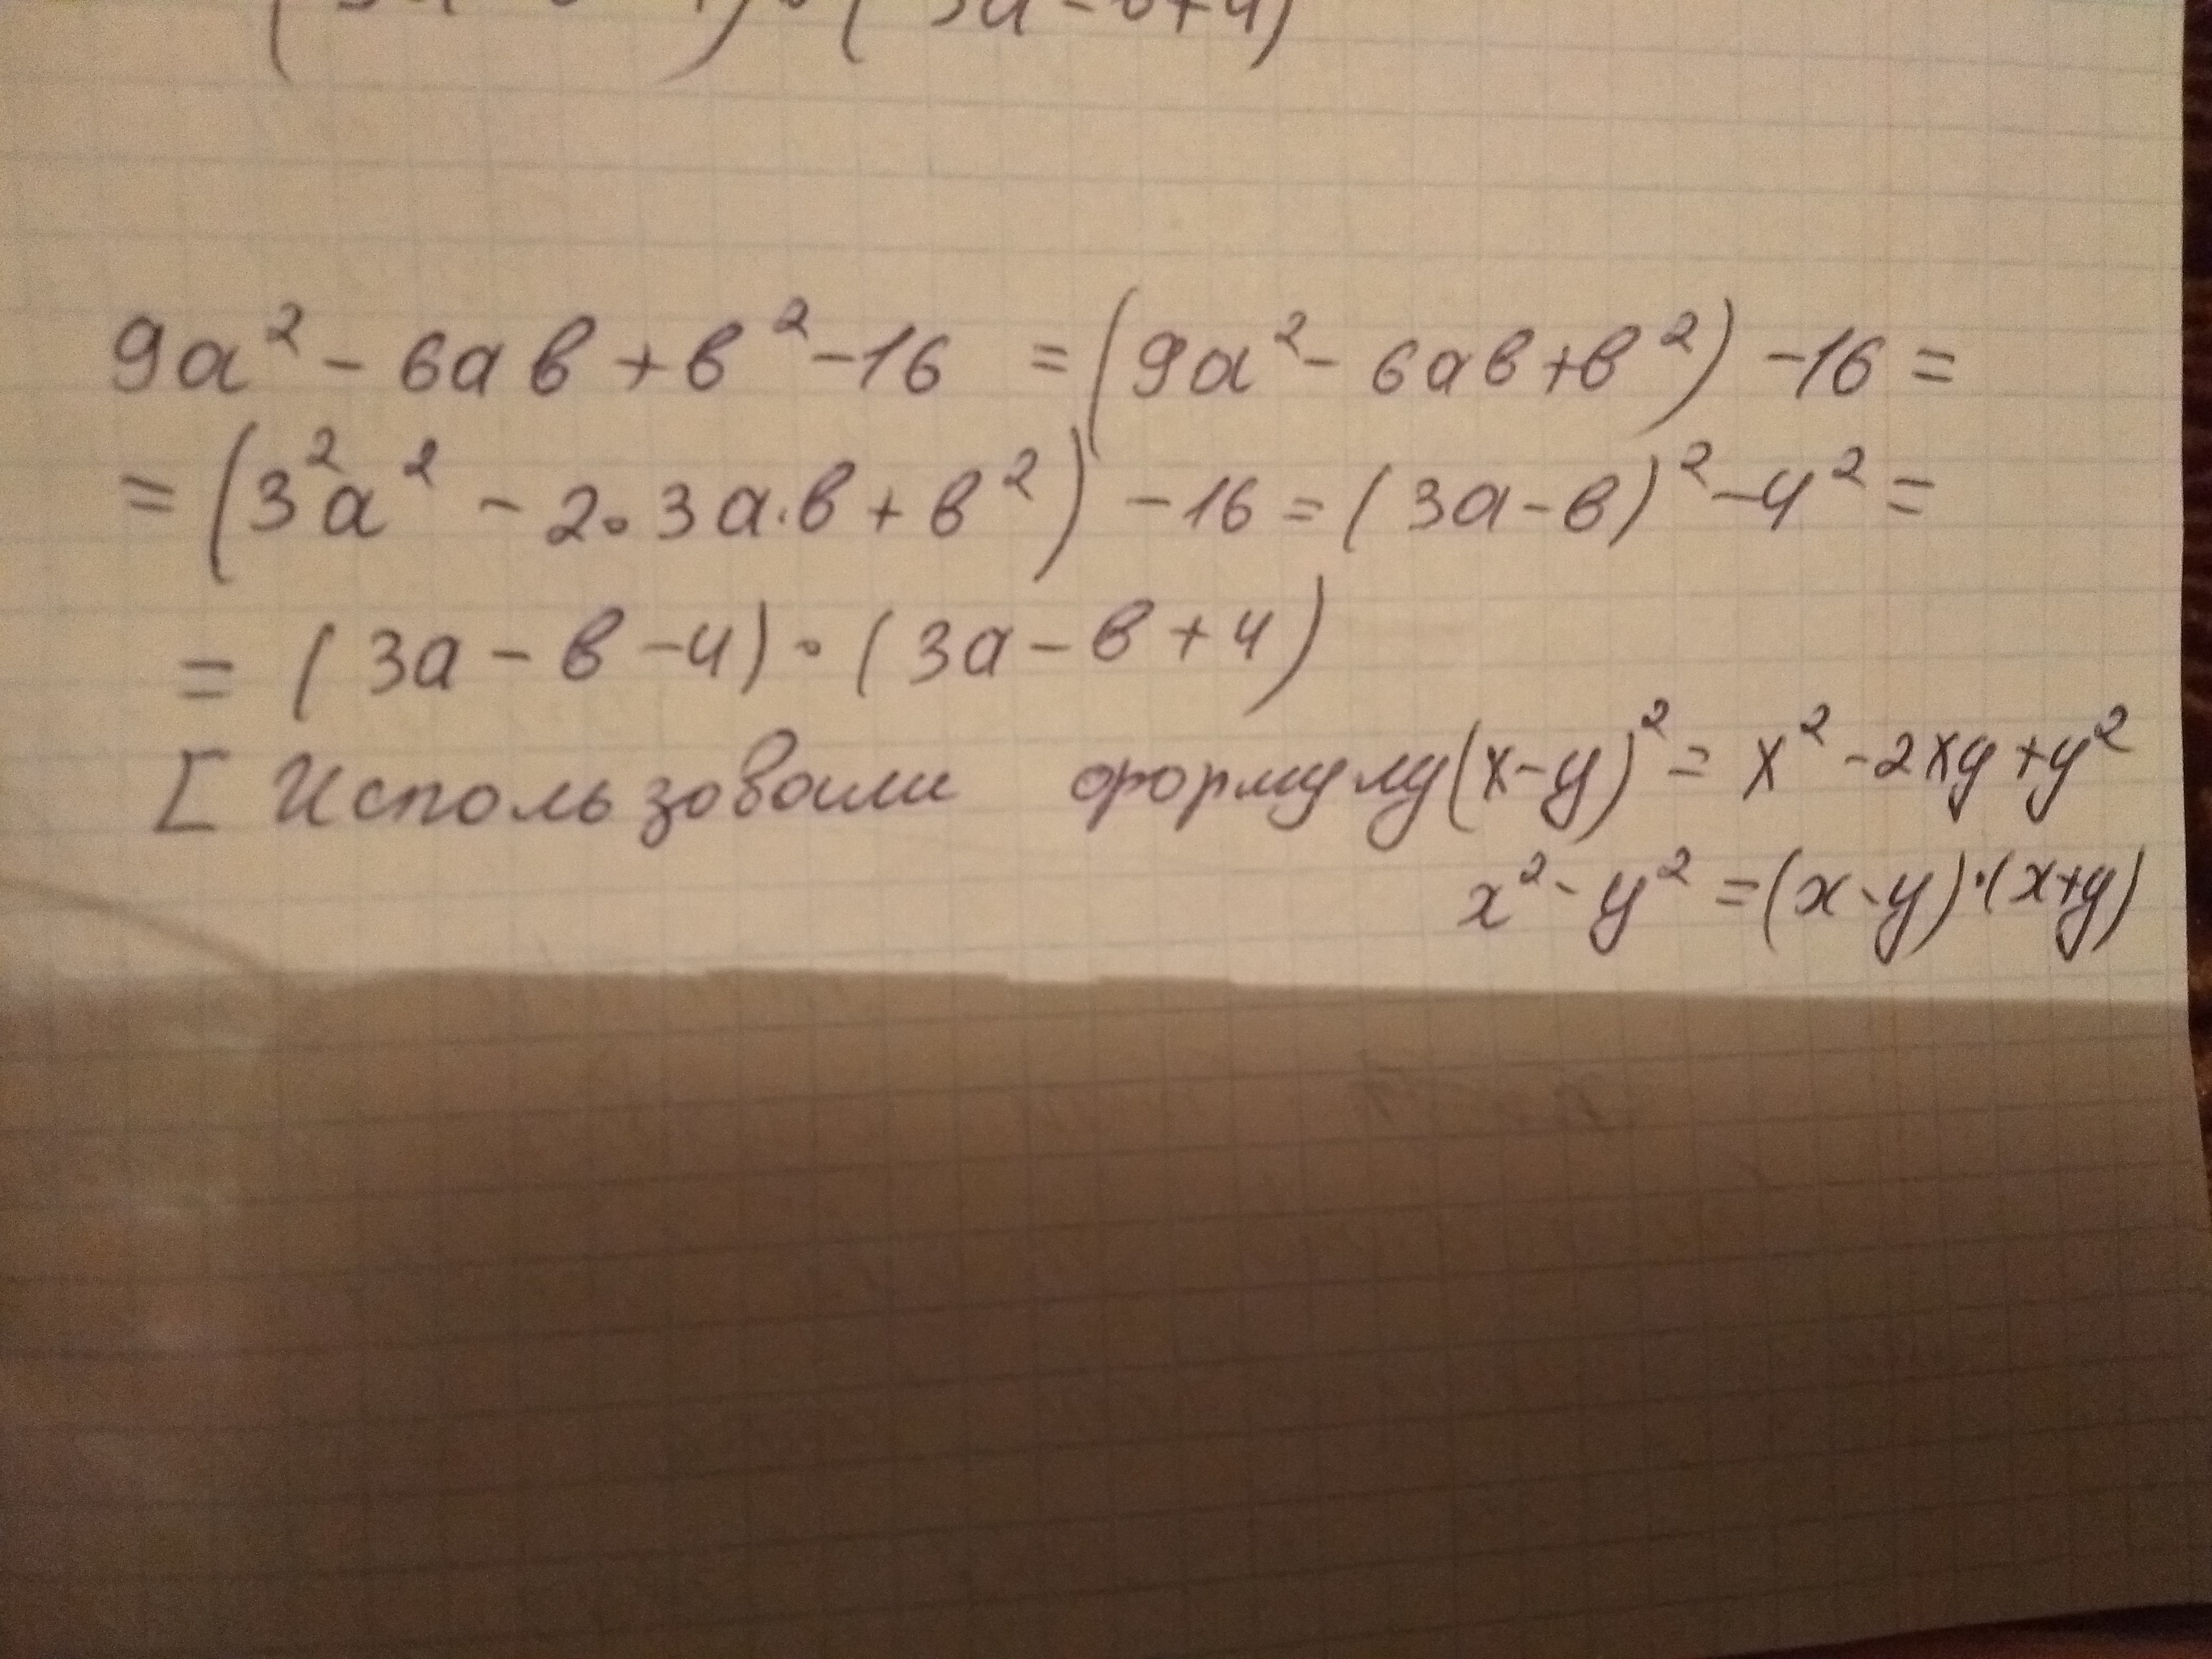 3a-в+4)
9a² - 6aв + в² - 16 = (9a² - 6aв + в²) - 16 =
= (3²a² - 2·3a·в + в²) - 16 = (3a - в)² - 4² =
= (3a - в - 4)·(3a - в + 4)
[ Использовали формулу (x-y)² = x² - 2xy + y²
x² - y² = (x-y)·(x+y)